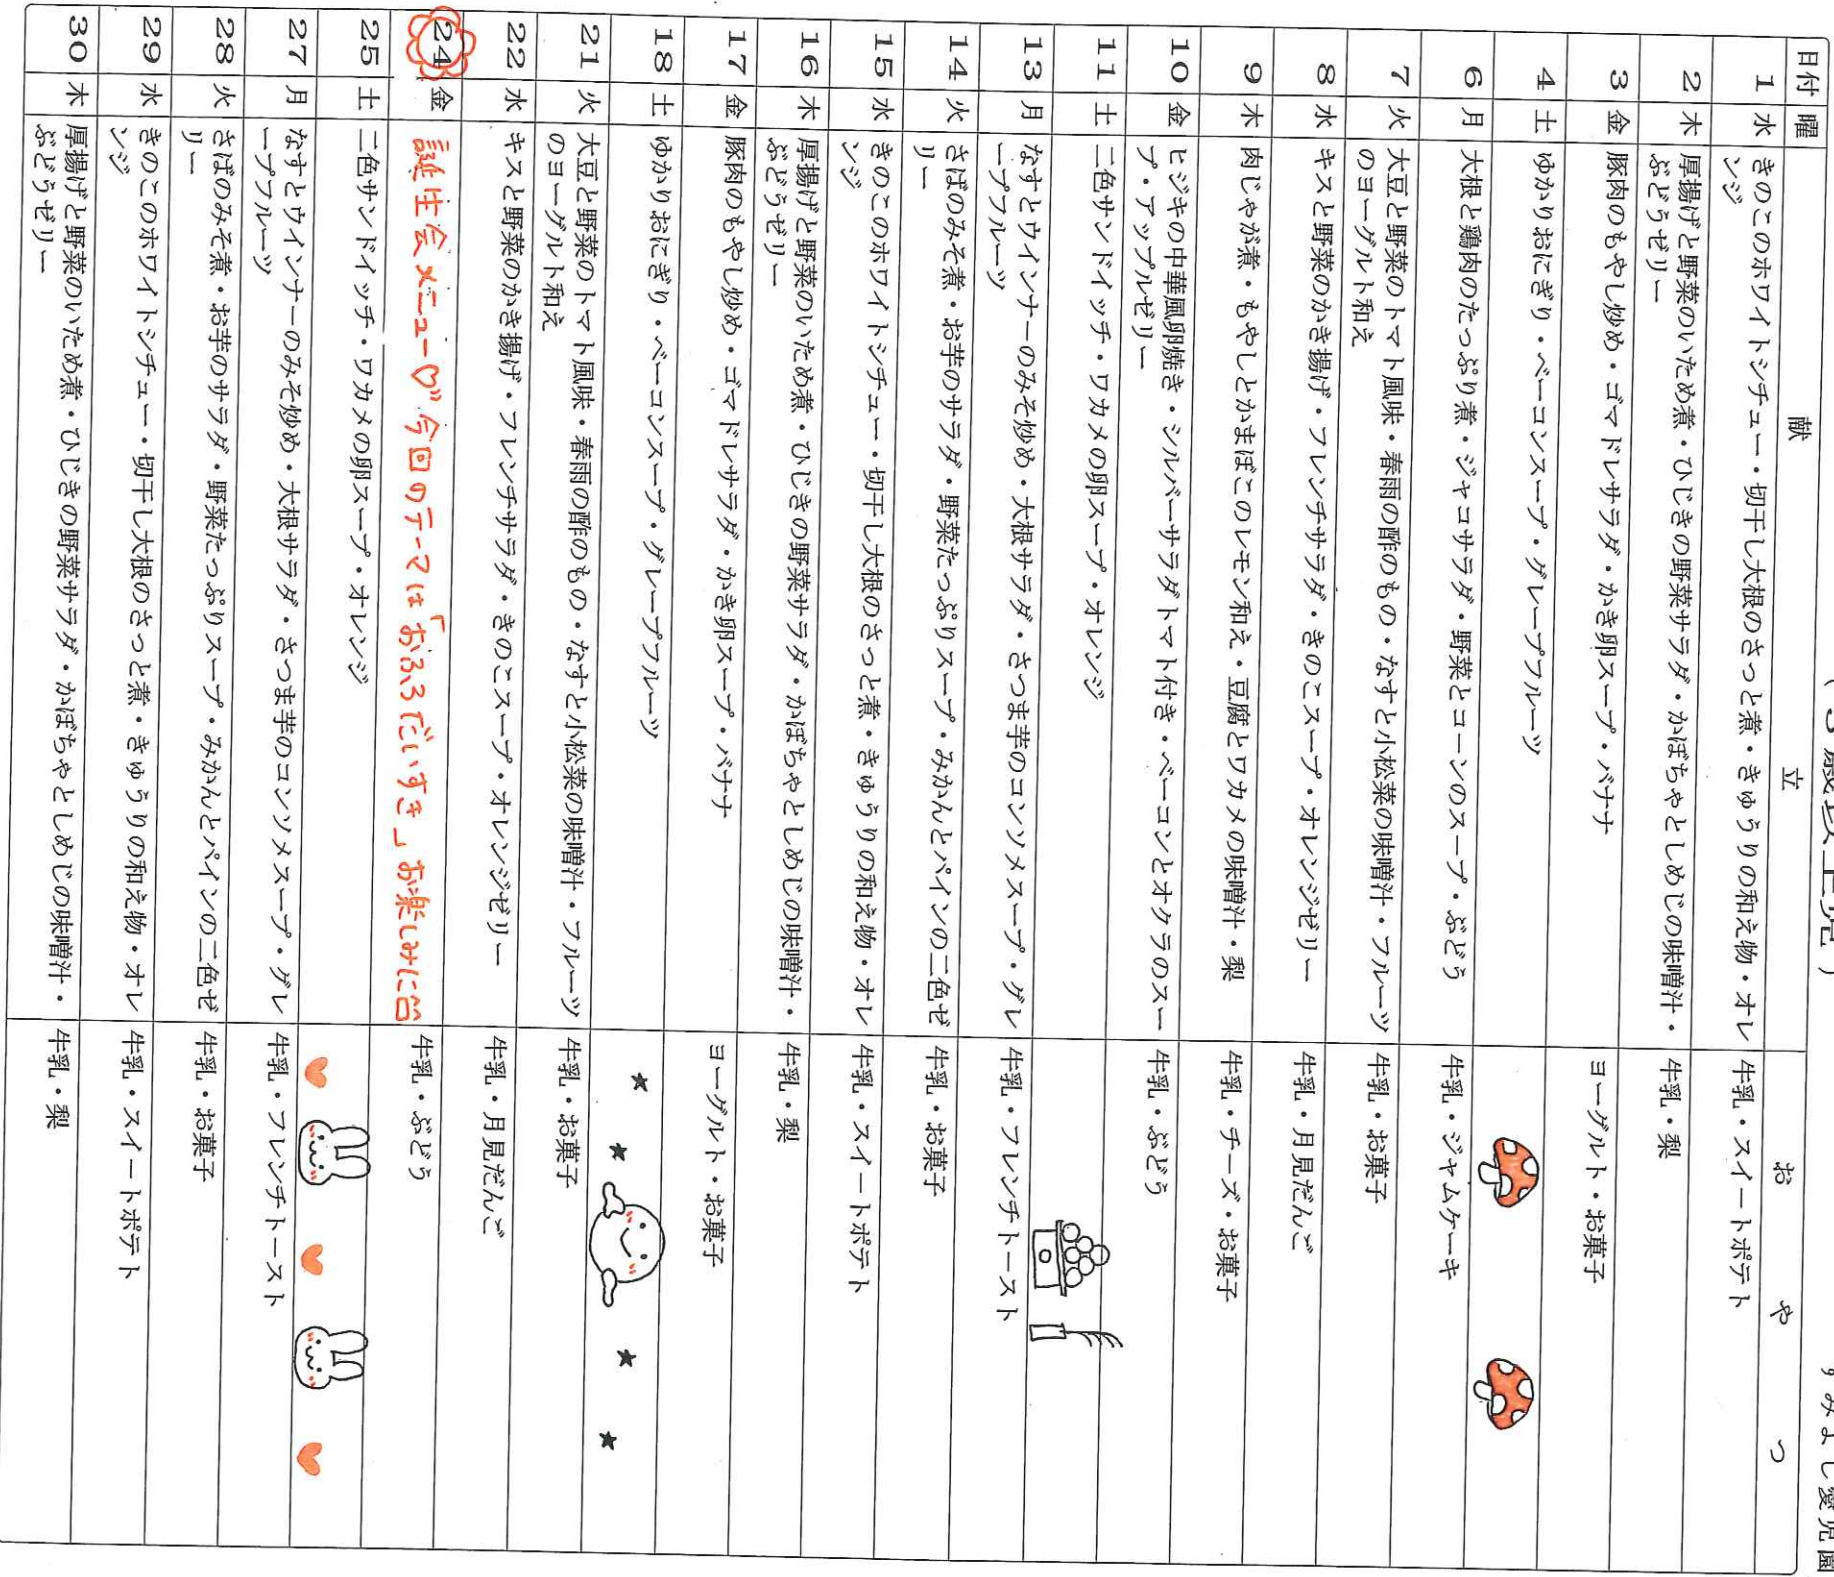 (3歳以上児)
すみよし愛児園
日付 曜 献 立 お や つ
1 水 きのこのホワイトシチュー・切干し大根のさっと煮・きゅうりの和え物・オレ 牛乳・スイートポテト
ンジ
2 木 厚揚げと野菜のいため煮・ひじきの野菜サラダ・かぼちゃとしめじの味噌汁・ 牛乳・梨
ぶどうゼリー
3 金 豚肉のもやし炒め・ゴマドレサラダ・かき卵スープ・バナナ ヨーグルト・お菓子
4 土 ゆかりおにぎり・ベーコンスープ・グレープフルーツ
6 月 大根と鶏肉のたっぷり煮・ジャコサラダ・野菜とコーンのスープ・ぶどう 牛乳・ジャムケーキ
7 火 大豆と野菜のトマト風味・春雨の酢のもの・なすと小松菜の味噌汁・フルーツ 牛乳・お菓子
のヨーグルト和え
8 水 キスと野菜のかき揚げ・フレンチサラダ・きのこスープ・オレンジゼリー 牛乳・月見だんご
9 木 肉じゃが煮・もやしとかまぼこのレモン和え・豆腐とワカメの味噌汁・梨 牛乳・チーズ・お菓子
10 金 ヒジキの中華風卵焼き・シルバーサラダトマト付き・ベーコンとオクラのスー 牛乳・ぶどう
プ・アップルゼリー
11 土 二色サンドイッチ・ワカメの卵スープ・オレンジ
13 月 なすとウインナーのみそ炒め・大根サラダ・さつま芋のコンソメスープ・グレ 牛乳・フレンチトースト
ープフルーツ
14 火 さばのみそ煮・お芋のサラダ・野菜たっぷりスープ・みかんとパインの二色ゼ 牛乳・お菓子
リー
15 水 きのこのホワイトシチュー・切干し大根のさっと煮・きゅうりの和え物・オレ 牛乳・スイートポテト
ンジ
16 木 厚揚げと野菜のいため煮・ひじきの野菜サラダ・かぼちゃとしめじの味噌汁・ 牛乳・梨
ぶどうゼリー
17 金 豚肉のもやし炒め・ゴマドレサラダ・かき卵スープ・バナナ ヨーグルト・お菓子
18 土 ゆかりおにぎり・ベーコンスープ・グレープフルーツ
21 火 大豆と野菜のトマト風味・春雨の酢のもの・なすと小松菜の味噌汁・フルーツ 牛乳・お菓子
のヨーグルト和え
22 水 キスと野菜のかき揚げ・フレンチサラダ・きのこスープ・オレンジゼリー 牛乳・月見だんご
24 金 誕生会メニュー♡ 今回のテーマは「おふろだいすき」お楽しみに 牛乳・ぶどう
25 土 二色サンドイッチ・ワカメの卵スープ・オレンジ
27 月 なすとウインナーのみそ炒め・大根サラダ・さつま芋のコンソメスープ・グレ 牛乳・フレンチトースト
ープフルーツ
28 火 さばのみそ煮・お芋のサラダ・野菜たっぷりスープ・みかんとパインの二色ゼ 牛乳・お菓子
リー
29 水 きのこのホワイトシチュー・切干し大根のさっと煮・きゅうりの和え物・オレ 牛乳・スイートポテト
ンジ
30 木 厚揚げと野菜のいため煮・ひじきの野菜サラダ・かぼちゃとしめじの味噌汁・ 牛乳・梨
ぶどうゼリー